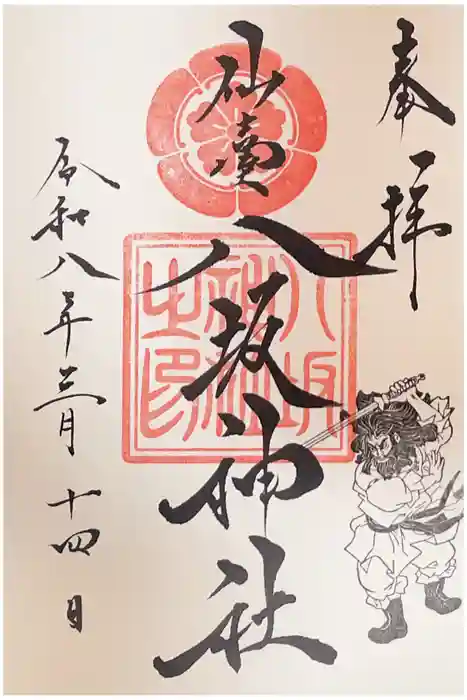 奉拝
仙賣八坂神社
令和八年三月十四日
八坂神社之印